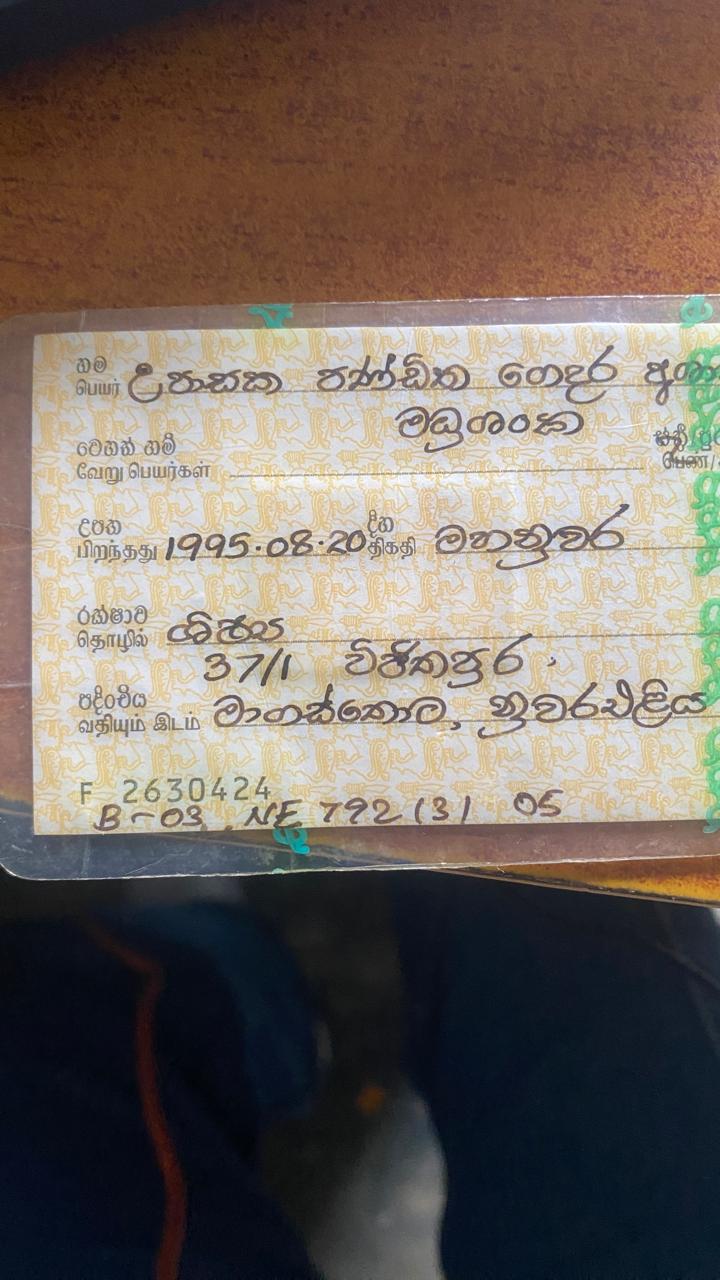 නම උපාසක පණ්ඩිත ගෙදර
பெயர்
මධුශංක
වෙනත් නම්
வேறு பெயர்கள்
උපන் දින
பிறந்தது 1995.08.20 திகதி මහනුවර
රක්ෂාව
தொழில் ශිෂ්‍ය
37/1 විජිතපුර.
පදිංචිය
வதியும் இடம் මාගස්තොට, නුවරඑළිය
F 2630424
B-03 NE 792 (3) 05